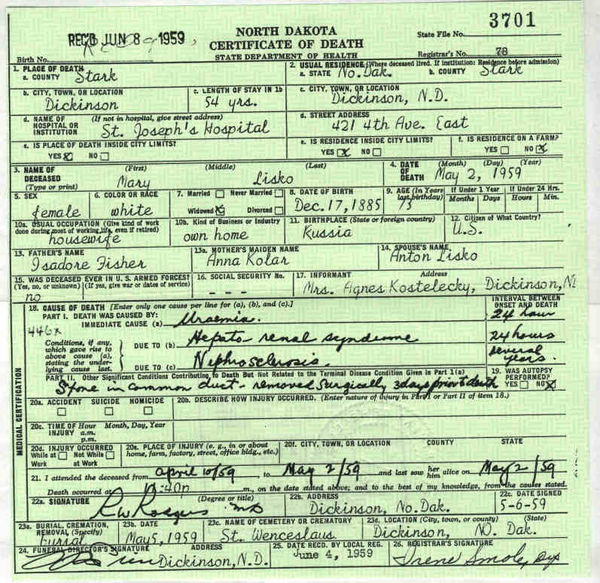 3701
NORTH DAKOTA
CERTIFICATE OF DEATH
STATE DEPARTMENT OF HEALTH
REC'D JUN 8 1959
State File No.
Birth No.
Registrar's No. 78
1. PLACE OF DEATH
a. COUNTY Stark
2. USUAL RESIDENCE (Where deceased lived. If institution: Residence before admission)
a. STATE No. Dak. b. COUNTY Stark
b. CITY, TOWN, OR LOCATION Dickinson
c. LENGTH OF STAY IN 1b 54 yrs.
c. CITY, TOWN, OR LOCATION Dickinson, N.D.
d. NAME OF HOSPITAL OR INSTITUTION (If not in hospital, give street address) St. Joseph's Hospital
d. STREET ADDRESS 421 4th Ave. East
e. IS PLACE OF DEATH INSIDE CITY LIMITS? YES X NO
e. IS RESIDENCE INSIDE CITY LIMITS? YES X NO
f. IS RESIDENCE ON A FARM? YES NO X
3. NAME OF DECEASED (Type or print) (First) (Middle) (Last) Mary Lisko
4. DATE OF DEATH (Month) (Day) (Year) May 2, 1959
5. SEX female
6. COLOR OR RACE white
7. Married Never Married Widowed X Divorced
8. DATE OF BIRTH Dec. 17, 1885
9. AGE (In Years last birthday) 73 If Under 1 Year Months Days If Under 24 Hrs. Hours Min.
10a. USUAL OCCUPATION (Give kind of work done during most of working life, even if retired) housewife
10b. Kind of Business or Industry own home
11. BIRTHPLACE (State or foreign country) Russia
12. Citizen of What Country? U.S.
13. FATHER'S NAME Isadore Fisher
13a. MOTHER'S MAIDEN NAME Anna Kolar
14. SPOUSE'S NAME Anton Lisko
15. WAS DECEASED EVER IN U.S. ARMED FORCES? (Yes, no, or unknown) (If yes, give war or dates of service) no
16. SOCIAL SECURITY NO. -
17. INFORMANT Address Mrs. Agnes Kostelecky, Dickinson, ND
MEDICAL CERTIFICATION
18. CAUSE OF DEATH [Enter only one cause per line for (a), (b), and (c).]
INTERVAL BETWEEN ONSET AND DEATH
PART I. DEATH WAS CAUSED BY:
IMMEDIATE CAUSE (a) Uraemia. 24 hour
446X
Conditions, if any, which gave rise to above cause (a), stating the underlying cause last.
DUE TO (b) Hepato-renal syndrome 24 hours
DUE TO (c) Nephrosclerosis. several years.
PART II. Other Significant Conditions Contributing to Death But Not Related to the Terminal Disease Condition Given in Part 1(a)
Stone in common duct - removed surgically 3 days prior to death
19. WAS AUTOPSY PERFORMED? YES NO X
20a. ACCIDENT SUICIDE HOMICIDE
20b. DESCRIBE HOW INJURY OCCURRED. (Enter nature of injury in Part I or Part II of item 18.)
20c. TIME OF INJURY Hour a.m. p.m. Month, Day, Year
20d. INJURY OCCURRED While at Work Not While at Work
20e. PLACE OF INJURY (e. g., in or about home, farm, factory, street, office bldg., etc.)
20f. CITY, TOWN, OR LOCATION COUNTY STATE
21. I attended the deceased from April 10/59 to May 2/59 and last saw her alive on May 2/59
Death occurred at :40p m., on the date stated above; and to the best of my knowledge, from the causes stated.
22a. SIGNATURE (Degree or title) MD
22b. ADDRESS Dickinson, No. Dak.
22c. DATE SIGNED 5-6-59
23a. BURIAL, CREMATION, REMOVAL (Specify) burial
23b. DATE May 5, 1959
23c. NAME OF CEMETERY OR CREMATORY St. Wenceslaus
23d. LOCATION (City, town, or county) (State) Dickinson, No. Dak.
24. FUNERAL DIRECTOR'S SIGNATURE Dickinson, N.D.
25. DATE RECD. BY LOCAL REG. June 4, 1959
26. REGISTRAR'S SIGNATURE Irene